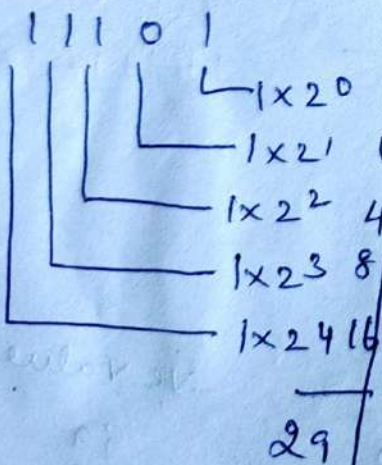 1 1 1 0 1
1×2⁰
1×2¹
1×2² 4
1×2³ 8
1×2⁴ 16
29